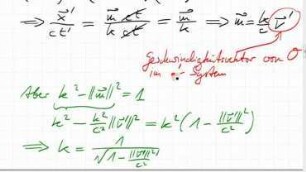 ⇒ x⃗'/ct' = m⃗ ct/k ct = m⃗/k ⇒ m⃗ = k/c v⃗'
Geschwindigkeitsvektor von O
im System
Aber k² - ||m⃗||² = 1
k² - k²/c² ||v⃗'||² = k² (1 - ||v⃗'||²/c²)
⇒ k = 1/√(1 - ||v⃗'||²/c²)